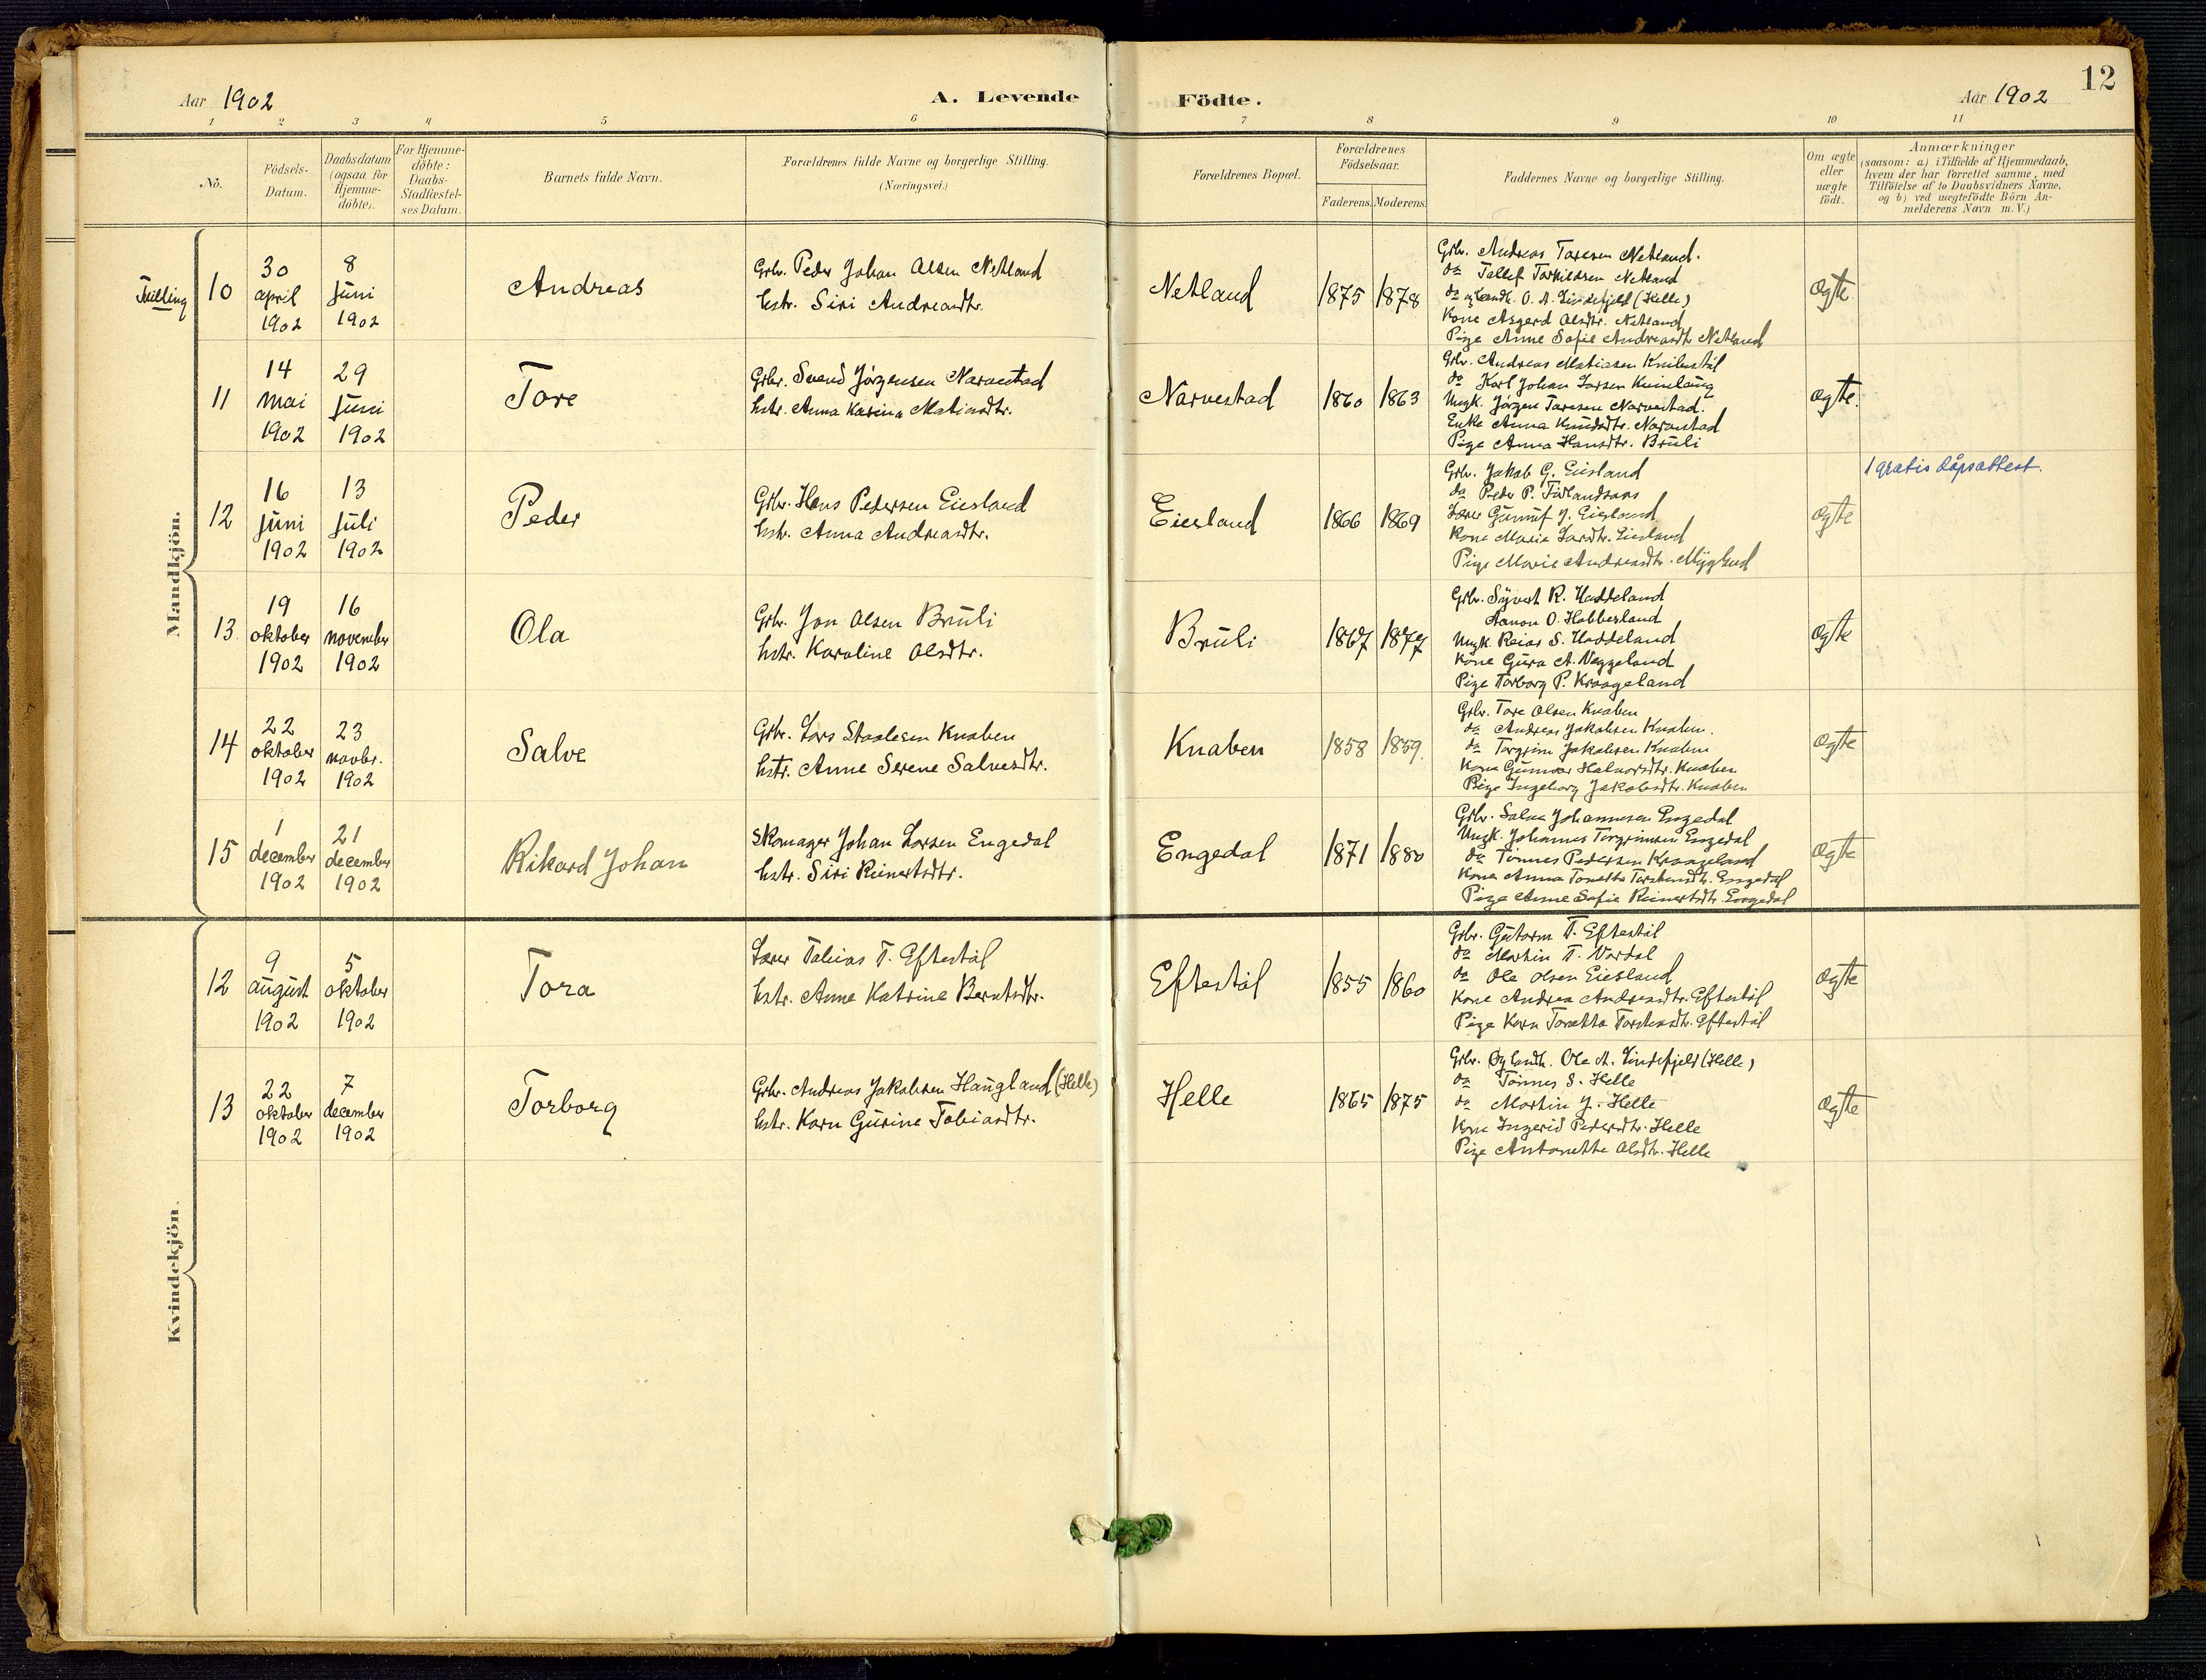 Aar 1902
A. Levende
Födte.
Aar 1902
12
1 2 3 4 5 6 7 8 9 10 11
No.
Födsels-
Datum.
Daabsdatum
(ogsaa for
Hjemme-
döbte).
For Hjemme-
döbte:
Daabs-
Stadfæstel-
ses Datum.
Barnets fulde Navn.
Forældrenes fulde Navne og borgerlige Stilling.
(Næringsvei.)
Forældrenes Bopæl.
Forældrenes
Födselsaar.
Faderens. Moderens.
Faddernes Navne og borgerlige Stilling.
Om ægte
eller
uægte
födt.
Anmærkninger
(saasom: a) i Tilfælde af Hjemmedaab,
hvem der har forrettet samme, med
Tilföielse af to Daabsvidners Navne,
og b) ved uægtefödte Börn An-
melderens Navn m.V.)
Mandkjön.
Tvilling
10
30
april
1902
8
juni
1902
Andreas
Grbr. Peder Johan Olsen Netland
hstr. Siri Andreasdtr.
Netland
1875 1878
Grbr. Andreas Taresen Netland.
do Tallef Torkildsen Netland
do O. A. Lindefjeld (Helle)
Kone Asgerd Olsdtr. Netland
Pige Anne Sofie Andreasdtr. Netland
ægte
11
14
mai
1902
29
juni
1902
Tore
Grbr. Svend Jörgensen Narvestad
hstr. Anna Karina Matiasdtr.
Narvestad
1860 1863
Grbr. Andreas Matiasen Knibestöl
do Karl Johan Larsen Kvinlaug
Ungk. Jörgen Taresen Narvestad.
Enke Anna Knudsdtr. Narvestad
Pige Anna Hansdtr. Bruli
ægte.
12
16
juni
1902
13
juli
1902
Peder
Grbr. Hans Pedersen Eiesland
hstr. Anna Andreasdtr.
Eiesland
1866 1869
Grbr. Jakob G. Eiesland
do Peder P. Förlandsaas
Lærer Gunnuf J. Eiesland
Kone Maria Larsdtr. Eiesland
Pige Marie Andreasdtr. Mygland
ægte
1 gratis dåpsattest.
13
19
oktober
1902
16
november
1902
Ola
Grbr. Jon Olsen Bruli
hstr. Karoline Olsdtr.
Bruli
1867 1877
Grbr. Syvert R. Haddeland
Aanon O. Hobbesland
Ungk. Reiar S. Haddeland
Kone Gura A. Veggeland
Pige Torborg P. Kraageland
ægte
14
22
oktober
1902
23
novbr.
1902
Salve
Grbr. Lars Staalesen Knaben
hstr. Anne Serene Salvesdtr.
Knaben
1858 1859.
Grbr. Tore Olsen Knaben
do Andreas Jakobsen Knaben.
do Torgrim Jakobsen Knaben
Kone Gunvor Halvorsdtr. Knaben
Pige Ingeborg Jakobsdtr. Knaben
ægte
15
1
december
1902
21
december
1902
Rikard Johan
Skomager Johan Larsen Engedal
hstr. Siri Reinertsdtr.
Engedal
1871 1880
Grbr. Salve Johannesen Engedal
Ungk. Johannes Torgrimsen Engedal
do Tönnes Pedersen Kraageland
Kone Anna Tonette Engedal
Pige Anne Sofie Reinertsdtr. Engedal
ægte
Kvindekjön.
12
9
august
1902
5
oktober
1902
Tora
Lærer Tobias T. Eftestöl
hstr. Anne Katrine Berntsdtr.
Eftestöl
1855 1860
Grbr. Gutorm T. Eftestöl
do Martin T. Vordal
do Ole Olsen Eiesland
Kone Andrea Andreasdtr. Eftestöl
Pige Karn Tonetta Eftestöl
ægte
13
22
oktober
1902
7
december
1902
Torborg
Grbr. Andreas Jakobsen Haugland (Helle)
hstr. Karn Gurine Tobiasdtr.
Helle
1865 1875
Grbr. Ole A. Lindefjeld (Helle)
do Tönnes S. Helle
do Martin J. Helle
Kone Ingerid Pedersdtr. Helle
Pige Antonette Olsdtr. Helle
ægte